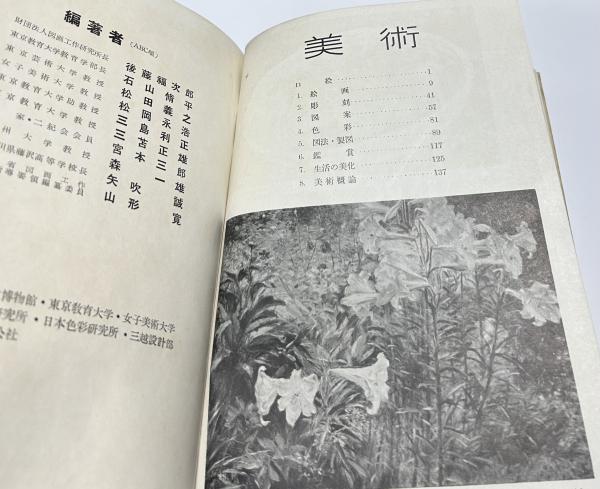 編著者 (ABC順)
財団法人図画工作研究所長 後藤福次郎
東京教育大学教育学部長 石山脩平
東京芸術大学教授 松田義之
女子美術大学教授 松岡永浩
京教育大学助教授 三島利正
京教育大学教授 三苫正雄
家・二紀会会員 宮本三郎
州大学教授 森一雄
川県藤沢高等学校長 矢吹誠
省図画工作
指導要領編纂委員 山形寛
博物館・東京教育大学・女子美術大学
研究所・日本色彩研究所・三越設計部
公社
美術
口絵 1
1. 絵画 9
2. 彫刻 41
3. 図案 57
4. 色彩 81
5. 図法・製図 89
6. 鑑賞 117
7. 生活の美化 125
8. 美術概論 137